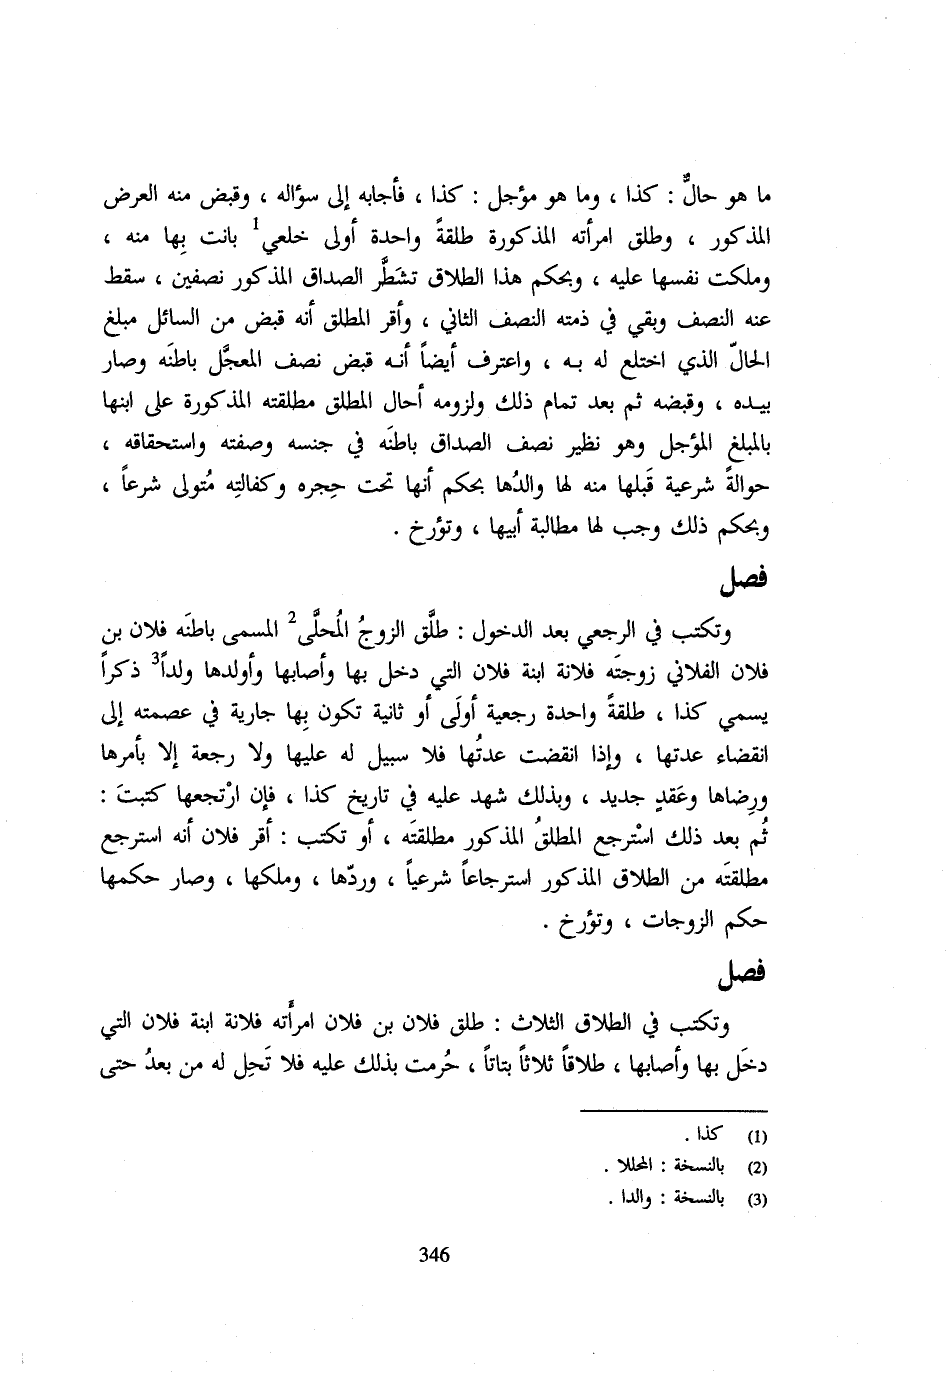 ما هو حالٌّ : كذا ، وما هو مؤجل : كذا ، فأجابه إلى سؤاله ، وقبض منه العرض
المذكور ، وطلق امرأته المذكورة طلقةً واحدة أولى خلعي1 بانت بِها منه ،
وملكت نفسها عليه ، وبحكم هذا الطلاق تشَطَّر الصداق المذكور نصفين ، سقط
عنه النصف وبقي في ذمته النصف الثاني ، وأقر المطلق أنه قبض من السائل مبلغ
الحالّ الذي اختلع له به ، واعترف أيضاً أنه قبض نصف المعجَّل باطنَه وصار
بيده ، وقبضه ثم بعد تمام ذلك ولزومه أحال المطلق مطلقته المذكورة على ابنها
بالمبلغ المؤجل وهو نظير نصف الصداق باطنَه في جنسه وصفته واستحقاقه ،
حوالةً شرعية قَبلها منه لها والدُها بحكم أنها تحت حِجره وكفالتِه مُتولى شرعاً ،
وبحكم ذلك وجب لها مطالبة أبيها ، وتؤرخ .
فصل
وتكتب في الرجعي بعد الدخول : طلَّق الزوجُ المُحلَّى2 المسمى باطنَه فلان بن
فلان الفلاني زوجتَه فلانة ابنة فلان التي دخل بها وأصابها وأولدها ولداً3 ذكراً
يسمي كذا ، طلقةً واحدة رجعية أولَى أو ثانية تكون بِها جارية في عصمته إلى
انقضاء عدتها ، وإذا انقضت عدتُها فلا سبيل له عليها ولا رجعة إلا بأمرها
ورِضاها وعَقدٍ جديد ، وبذلك شهد عليه في تاريخ كذا ، فإن ارْتجعها كتبتَ :
ثُم بعد ذلك اسْترجع المطلقُ المذكور مطلقتَه ، أو تكتب : أقر فلان أنه استرجع
مطلقتَه من الطلاق المذكور استرجاعاً شرعياً ، وردّها ، وملكها ، وصار حكمها
حكم الزوجات ، وتؤرخ .
فصل
وتكتب في الطلاق الثلاث : طلق فلان بن فلان امرأته فلانة ابنة فلان التي
دخَل بها وأصابها ، طلاقاً ثلاثاً بتاتاً ، حُرمت بذلك عليه فلا تَحِل له من بعدُ حتى
(1) كذا .
(2) بالنسخة : المحللا .
(3) بالنسخة : والدا .
346